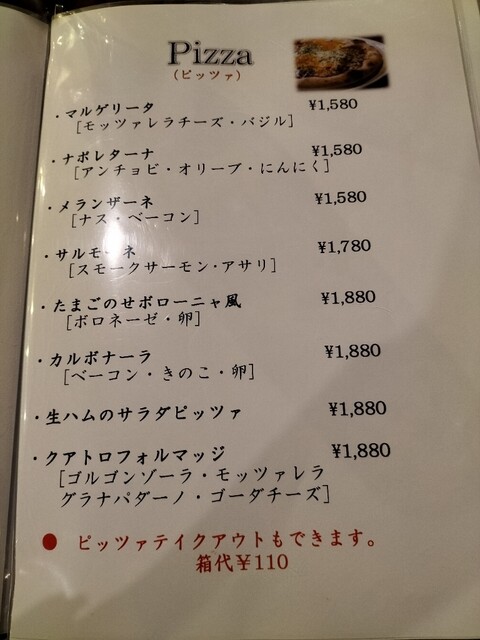 Pizza
(ピッツァ)
・マルゲリータ ¥1,580
[モッツァレラチーズ・バジル]
・ナポレターナ ¥1,580
[アンチョビ・オリーブ・にんにく]
・メランザーネ ¥1,580
[ナス・ベーコン]
・サルモーネ ¥1,780
[スモークサーモン・アサリ]
・たまごのせボローニャ風 ¥1,880
[ボロネーゼ・卵]
・カルボナーラ ¥1,880
[ベーコン・きのこ・卵]
・生ハムのサラダピッツァ ¥1,880
・クアトロフォルマッジ ¥1,880
[ゴルゴンゾーラ・モッツァレラ
グラナパダーノ・ゴーダチーズ]
● ピッツァテイクアウトもできます。
箱代¥110